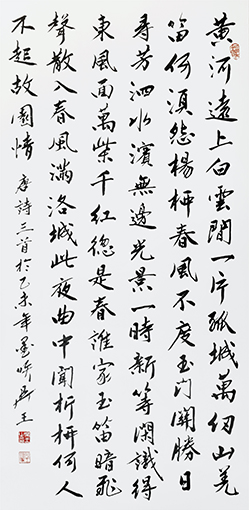 黄河遠上白雲間一片孤城萬仞山羌
笛何須怨楊柳春風不度玉门關勝日
尋芳泗水濱無邊光景一時新等閑識得
東風面萬紫千紅總是春誰家玉笛暗飛
聲散入春風滿洛城此夜曲中聞折柳何人
不起故園情 唐詩三首於乙未年